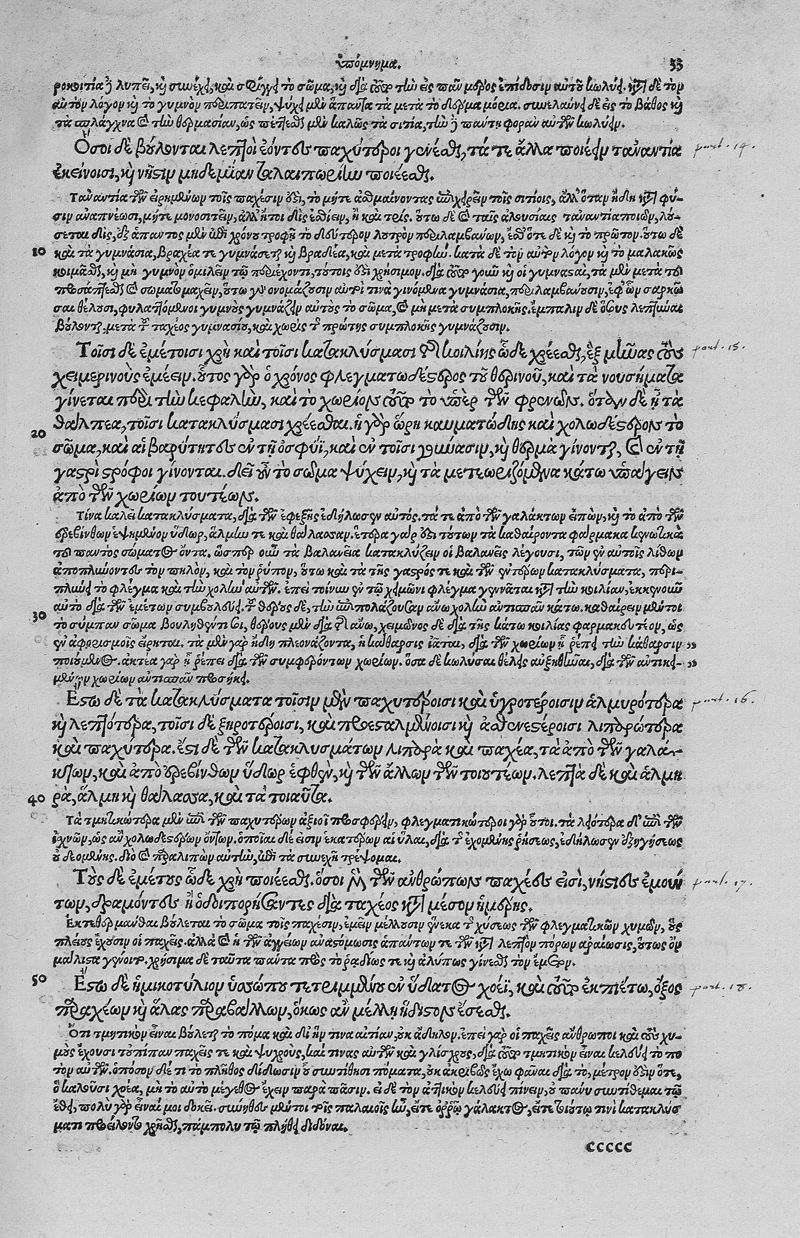 ὑπόμνημα. 33
ροκοιτία ἢ λυπεῖ, καὶ συνέχει, καὶ σφίγγει τὸ σῶμα, καὶ διὰ τοῦτο τὴν εἰς πᾶν μέρος ἐπίδοσιν αὐτοῦ κωλύει. κατὰ δὲ τὸν
αὐτὸν λόγον καὶ τὸ γυμνὸν περιπατεῖν, ψύχει μὲν ἅπαντα τὰ μετὰ τὸ δέρμα μόρια. συνελαύνει δὲ εἰς τὸ βάθος καὶ
τὰ σπλάγχνα καὶ τὴν θερμασίαν, ὡς πέττεσθαι μὲν καλῶς τὰ σιτία, τὴν δὲ πάντη φορὰν αὐτῶν κωλύει.
Ὅσοι δὲ βούλονται λεπτοὶ ἐόντες παχύτεροι γενέσθαι, τά τε ἄλλα ποιέειν τἀναντία part. 14.
ἐκείνοισι, καὶ νῆστιν μηδεμίαν ταλαιπωρίην ποιέεσθαι.
Τἀναντία τῶν εἰρημένων τοῖς παχέσιν ἐστὶ, τὸ μήτε ἀσθμαίνοντας ἐπιχειρεῖν τοῖς σιτίοις, ἀλλ' ὅταν ἤδη κατὰ φύ-
σιν ἀναπνέωσι, μήτε μονοσιτεῖν, ἀλλ' ἤτοι δὶς ἐσθίειν, ἢ καὶ τρίς. οὕτω δὲ καὶ ταῖς ἀλουσίαις τἀναντία ποιῶν, λού-
σεται δὶς, ἐξ ἅπαντος μὲν ἐπὶ χρόνου τροφῇ τὸ δεύτερον λουτρὸν παραλαμβάνων, ἔσθ' ὅτε δὲ καὶ τὸ πρῶτον. οὕτω δὲ
10 καὶ τὰ γυμνάσια, βραχέα τε γυμνάσει καὶ βραδέα, καὶ μετὰ τροφήν. κατὰ δὲ τὸν αὐτὸν λόγον καὶ τὸ μαλακῶς
κοιμᾶσθαι, καὶ μὴ γυμνὸν ὁμιλεῖν τῷ περιέχοντι, τούτοις ἐστὶ χρήσιμον. διὰ τοῦτο γοῦν καὶ οἱ γυμνασταὶ, τὰ μὲν μετὰ τοῦ
προσάπτεσθαι σωματομαχεῖν, οὕτω γὰρ ὀνομάζουσιν αὐτοί τινα γινόμενα γυμνάσια, παραλαμβάνουσιν, ἐφ' ὧν σαρκῶ-
σαι θέλουσι, φυλαττόμενοι γυμνοὺς γυμνάζειν αὐτοὺς τὸ σῶμα, καὶ μὴ μετὰ συμπλοκῆς. ἔμπαλιν δὲ οὓς λεπτῦναι
βούλονται, μετὰ τοῦ ταχέος γυμνασίου, καὶ χωρὶς τῆς πρώτης συμπλοκῆς γυμνάζουσιν.
Τοῖσι δὲ ἐμέτοισι χρὴ καὶ τοῖσι κατακλύσμασι τῆς κοιλίης ὧδε χρέεσθαι, ἓξ μῆνας τοὺς part. 15.
χειμερινοὺς ἐμέειν. οὗτος γὰρ ὁ χρόνος φλεγματωδέστερος τοῦ θερινοῦ, καὶ τὰ νουσήματα
γίνεται περὶ τὴν κεφαλὴν, καὶ τὸ χωρίον τοῦτο τὸ ὑπὲρ τῶν φρενῶν. ὅταν δὲ ᾖ τὰ
θάλπεα, τοῖσι κατακλύσμασι χρέεσθαι. ἡ γὰρ ὥρη καυματώδης καὶ χολωδέστερον τὸ
20 σῶμα, καὶ αἱ βαρύτητες ἐν τῇ ὀσφύϊ, καὶ ἐν τοῖσι γούνασιν, καὶ θερμὰ γίνονται, καὶ ἐν τῇ
γαστρὶ στρόφοι γίνονται. δεῖ οὖν τὸ σῶμα ψύχειν, καὶ τὰ μετεωριζόμενα κάτω ὑπάγειν
ἀπὸ τῶν χωρίων τουτέων.
Τίνα καλεῖ κατακλύσματα, διὰ τῶν ἐφεξῆς ἐδήλωσεν αὐτός. τά τε ἀπὸ τῶν γαλάκτων εἰπὼν, καὶ τὸ ἀπὸ τῶν
ἐρεβίνθων ἑψημένων ὕδωρ, ἅλμην τε καὶ θάλασσαν. ἕτερα γάρ ἐστι τούτων τὰ καθαίροντα φάρμακα κενωτικὰ
τοῦ παντὸς σώματος ὄντα, ὥσπερ οὖν τὰ βαλανεῖα κατακλύζειν οἱ βαλανεῖς λέγουσι, τῶν ἐν αὐτοῖς λίθων
ἀποπλύνοντες τὸν πηλὸν, καὶ τὸν ῥύπον, οὕτω καὶ τὰ τῆς γαστρός τε καὶ τῶν ἐντέρων κατακλύσματα, περι-
πλύνει τὸ φλέγμα καὶ τὴν χολὴν αὐτῶν. ἐπεὶ τοίνυν ἐν τῷ χειμῶνι φλέγμα γεννᾶται κατὰ τὴν κοιλίαν, ἐκκενοῦν
30 αὐτὸ διὰ τῶν ἐμέτων συμβουλεύει. τοῦ θέρους δὲ, τὴν ἐπιπολάζουσαν ἄνω χολὴν ἀντισπᾶν κάτω. καθαίρειν μέντοι
τὸ σύμπαν σῶμα βουληθέντι σοι, θέρους μὲν διὰ τῆς ἄνω, χειμῶνος δὲ διὰ τῆς κάτω κοιλίας φαρμακευτέον, ὡς
ἐν ἀφορισμοῖς εἴρηται. τὰ μὲν γὰρ ἤδη πλεονάζοντα, ἡ κάθαρσις ἰᾶται, διὰ τῶν χωρίων ᾗ ῥέπει τὴν κάθαρσιν
ποιουμένη. ἀκτέα γὰρ ᾗ ῥέπει διὰ τῶν συμφερόντων χωρίων. ὅσα δὲ κωλῦσαι θέλεις αὐξηθῆναι, διὰ τῶν ἀντικει-
μένων χωρίων ἀντισπᾶν προσήκει.
Ἔστω δὲ τὰ κατακλύσματα τοῖσιν μὲν παχυτέροισι καὶ ὑγροτέροισιν ἁλμυρότερα part. 16.
καὶ λεπτότερα, τοῖσι δὲ ξηροτέροισι, καὶ προεσταλμένοισι καὶ ἀσθενεστέροισι λιπαρώτερα
καὶ παχύτερα. ἔστι δὲ τῶν κατακλυσμάτων λιπαρὰ καὶ παχέα, τὰ ἀπὸ τῶν γαλά-
κτων, καὶ ἀπὸ ἐρεβίνθων ὕδωρ ἑφθὸν, καὶ τῶν ἄλλων τῶν τοιουτέων. λεπτὰ δὲ καὶ ἁλμυ
40 ρὰ, ἅλμη καὶ θάλασσα, καὶ τὰ τοιαῦτα.
Τὰ τμητικώτερα μὲν ἐπὶ τῶν παχυτέρων ἀξιοῖ προσφέρειν, φλεγματικώτεροι γὰρ οὗτοι. τὰ λειότερα δὲ ἐπὶ τῶν
ἰσχνῶν, ὡς ἂν χολωδεστέρων ὄντων. ὁποῖαι δέ εἰσιν ἑκατέρων αἱ ὗλαι, διὰ τῆς ἐχομένης ῥήσεως, ἐδήλωσεν ἐξηγήσεως
οὐ δεομένης. διὸ καὶ παραλιπὼν αὐτὴν, ἐπὶ τὰ συνεχῆ τρέψομαι.
Τοὺς δὲ ἐμέτους ὧδε χρὴ ποιέεσθαι. ὅσοι μὲν τῶν ἀνθρώπων παχέες εἰσὶ, νήστιες ἐμούν part. 17.
των, δραμόντες ἢ ὁδοιπορήσαντες διὰ τάχεος κατὰ μέσον ἡμέρης.
Ἐκτεθερμάνθαι βούλεται τὸ σῶμα τοῖς παχέσιν, ἐμεῖν μέλλουσιν ἕνεκα τῆς χύσεως τῶν φλεγματικῶν χυμῶν, οὓς
πλείους ἔχουσιν οἱ παχεῖς. ἀλλὰ καὶ ἡ τῶν ἀγγείων ἀναστόμωσις ἁπάντων τε τῶν κατὰ λεπτὸν πόρων ἀραίωσις, οὕτως ἂν
μάλιστα γένοιτο. χρήσιμα δὲ ταῦτα πάντα πρὸς τὸ ῥᾳδίως τε καὶ ἀλύπως γίνεσθαι τὸν ἔμετον.
50 Ἔστω δὲ ἡμικοτύλιον ὑσσώπου τετριμμένου ἐν ὕδατος χοέϊ, καὶ τοῦτο ἐκπιέτω, ὄξος part. 18.
παραχέων καὶ ἅλας παραβάλλων, ὅκως ἂν μέλλῃ ἥδιστον ἔσεσθαι.
Ὅτι τμητικὸν εἶναι βούλεται τὸ πόμα καὶ δι' ἥν τινα αἰτίαν, οὐκ ἄδηλον. ἐπεὶ γὰρ οἱ παχεῖς ἄνθρωποι καὶ τοὺς χυ-
μοὺς ἔχουσι τοὐπίπαν παχεῖς τε καὶ ψυχροὺς, καί τινας αὐτῶν καὶ γλίσχρους, διὰ τοῦτο τμητικὸν εἶναι κελεύει τὸ πο
τὸν αὐτῶν. ὁπόσον δέ τι τὸ πλῆθος δίδωσιν οὗ συντίθησι πόματος, οὐκ ἀκριβῶς ἔχω φάναι διὰ τὸ, μέτρον ἐστὶν ὅτε,
ὃ καλοῦσι χοέα, μὴ τὸ αὐτὸ μέγεθος ἔχειν παρὰ πᾶσιν. εἰ δὲ τὸν ἀττικὸν κελεύει πίνειν, οὐ πάνυ συντίθεμαι τῷ
ἔθει, πολὺ γὰρ εἶναί μοι δοκεῖ. σύνηθες μέντοι τοῖς παλαιοῖς ἦν, εἴτε ὀρρῷ γάλακτος, εἴτε τοιούτῳ τινὶ κατακλύσ
ματι προείλοντο χρῆσθαι, πάμπολυ τῷ πλήθει διδόναι.
ccccc